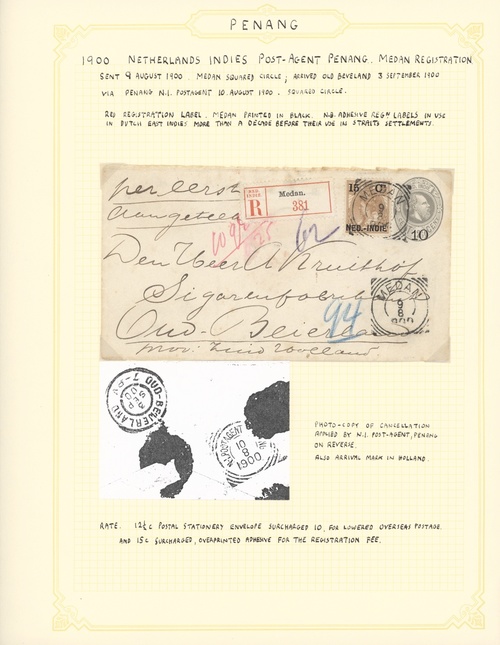 PENANG
1900 NETHERLANDS INDIES POST-AGENT PENANG. MEDAN REGISTRATION
SENT 9 AUGUST 1900. MEDAN SQUARED CIRCLE; ARRIVED OLD BEVELAND 3 SEPTEMBER 1900
VIA PENANG N.I. POSTAGENT 10 AUGUST 1900. SQUARED CIRCLE.
RED REGISTRATION LABEL. MEDAN PRINTED IN BLACK. N.B. ADHESIVE REGN LABELS IN USE
IN DUTCH EAST INDIES MORE THAN A DECADE BEFORE THEIR USE IN STRAITS SETTLEMENTS.
per eerst
aangeteek
NED. INDIË
R
Medan.
381
15
NED.-INDIË
MEDAN
9
8
10
62
Den Heer A Kruithof
Sigarenfabrik
Oud-Beierland
prov: Zuid Holland.
94
MEDAN
9
8
900
OUD-BEIERLAND
N.I. POSTAGENT
10
8
1900
PHOTO-COPY OF CANCELLATION
APPLIED BY N.I. POST-AGENT, PENANG
ON REVERSE.
ALSO ARRIVAL MARK IN HOLLAND.
RATE. 12½c POSTAL STATIONERY ENVELOPE SURCHARGED 10, FOR LOWERED OVERSEAS POSTAGE.
AND 15c SURCHARGED, OVERPRINTED ADHESIVE FOR THE REGISTRATION FEE.